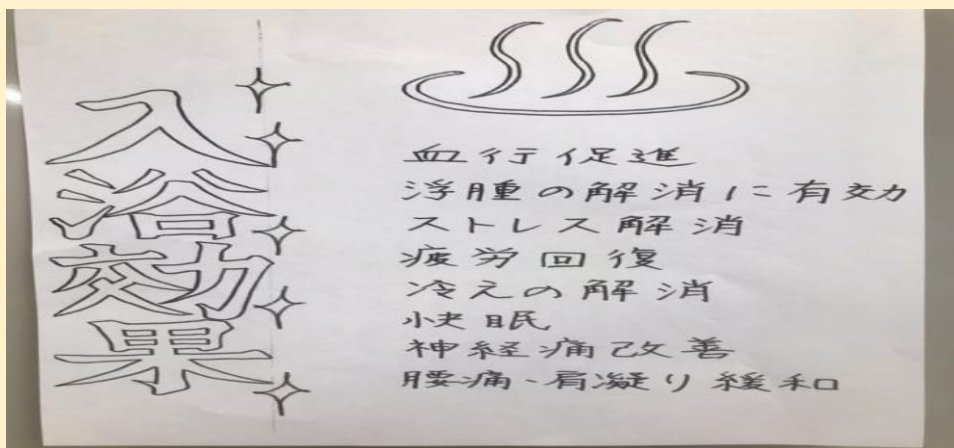 入浴効果
血行促進
浮腫の解消に有効
ストレス解消
疲労回復
冷えの解消
快眠
神経痛改善
腰痛、肩凝り緩和